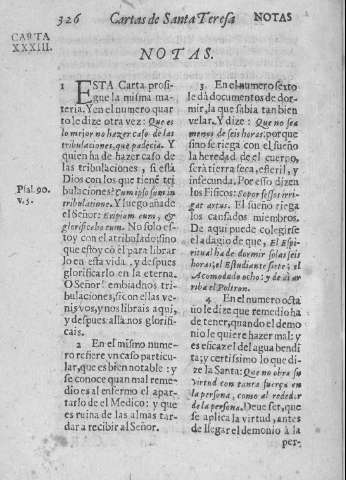 326 Cartas de Santa Teresa NOTAS
CARTA
XXXIII.
NOTAS.
1 ESTA Carta prosi-
gue la misma ma-
teria. Y en el numero quar-
to le dize otra vez: Que es
lo mejor no hazer caso de las
tribulaciones, que padecia. Y
quien ha de hazer caso de
las tribulaciones, si está
Dios con los que tiene tri-
bulaciones? Cum ipso sum in
Psal. 90.
v. 5.
tribulatione. Y luego añade
el Señor: Eripiam eum, &
glorificabo eum. No solo es-
toy con el atribulado; sino
que estoy cō èl para librar
lo en esta vida, y despues
glorificarlo en la eterna.
O Señor! embiadnos tri-
bulaciones, si con ellas ve-
nis vos, y nos librais aqui,
y despues allà nos glorifi-
cais.
2 En el mismo numero
refiere vn caso particu-
lar, que es bien notable: y
se conoce quan mal reme-
dio es al enfermo el apar-
tarlo de el Medico: y que
es ruina de las almas tar-
dar a recibir al Señor.
3 En el numero sexto
le dà documentos de dor-
mir, la que sabia tan bien
velar. Y dize: Que no sea
menos de seis horas: porque
sino se riega con el sueño
la heredad de el cuerpo,
serà tierra seca, esteril, y
infecunda. Por esso dizen
los Fisicos: Sopor fessos irri-
gat artus. El sueño riega
los causados miembros.
De aqui puede colegirse
el adagio de que, El Espi-
ritual ha de dormir solas seis
horas; el Estudiante siete; el
Acomodado ocho: y de ai ar
riba el Poltron.
4 En el numero octa
uo le dize que remedio ha
de tener, quando el demo
nio le quiere hazer mal: y
es eficaz el del agua bendi
ta; y certissimo lo que di-
ze la Santa: Que no obra su
virtud con tanta fuerça en
la persona, como al rededor
de la persona. Deue ser, que
se aplica la virtud, antes
de llegar el demonio à la
per-